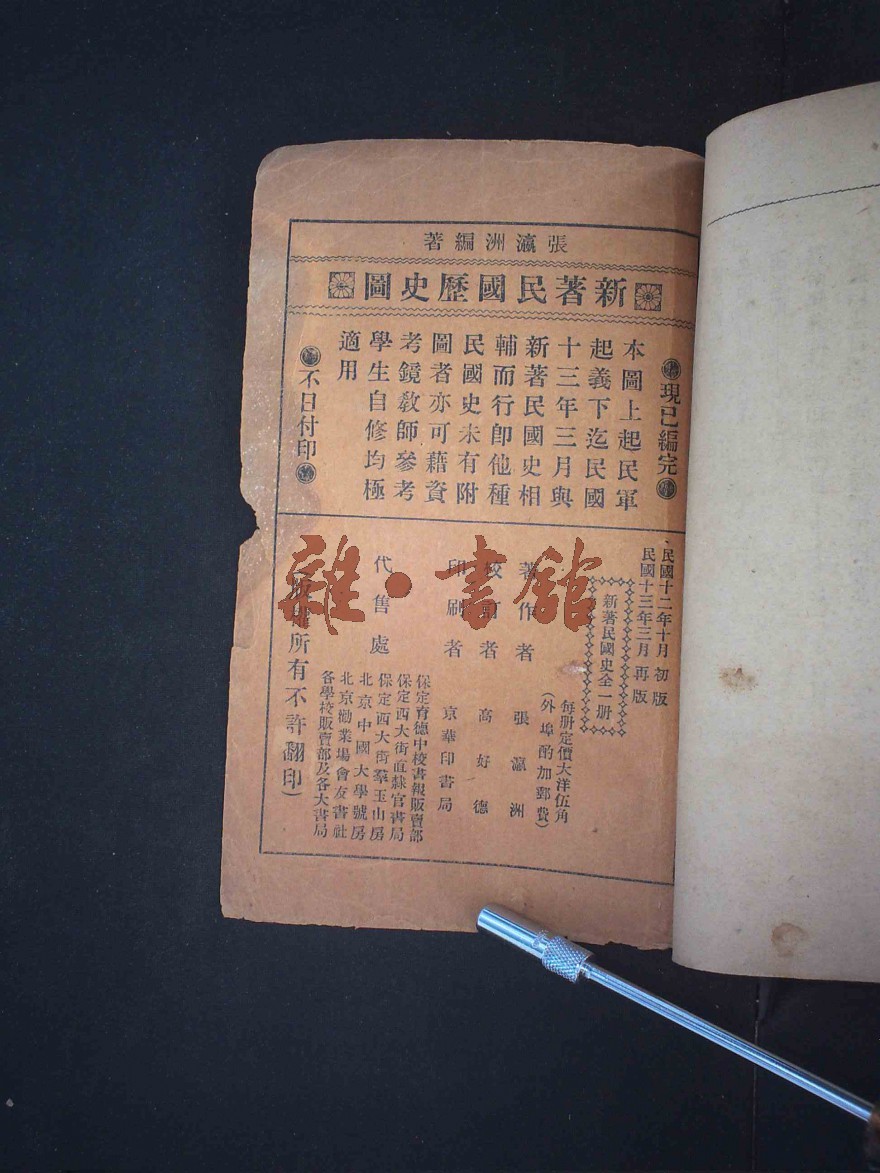 張瀛洲編著
新著民國歷史圖
現已編完
本圖上起民軍
起義下迄民國
十三年三月與
新著民國史相
輔而行卽他種
民國史未有附
圖者亦可藉資
考鏡教師參考
學生自修均極
適用
不日付印
民國十二年十月初版
民國十三年三月再版
新著民國史全一册
每册定價大洋伍角
(外埠酌加郵費)
著作者 張瀛洲
校訂者 高好德
印刷者 京華印書局
代售處
保定育德中校書報販賣部
保定西大街直隸官書局
保定西大街羣玉山房
北京中國大學號房
北京勸業場會友書社
各學校販賣部及各大書局
(版權所有不許翻印)
雜·書館